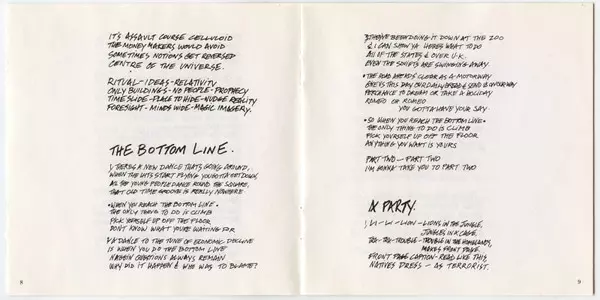 IT'S ASSAULT COURSE CELLULOID
THE MONEY MAKERS WOULD AVOID
SOMETIMES NOTIONS GET REVERSED
CENTRE OF THE UNIVERSE.
RITUAL-IDEAS-RELATIVITY
ONLY BUILDINGS-NO PEOPLE-PROPHECY
TIMESLIDE-PLACE TO HIDE-NUDGE REALITY
FORESIGHT-MINDS WIDE-MAGIC IMAGERY.
THE BOTTOM LINE.
THERES A NEW DANCE THATS GOING AROUND,
WHEN THE HITS START FLYING YOU GOTTA GET DOWN,
AS THE YOUNG PEOPLE DANCE ROUND THE SQUARE,
THAT OLD TIME GROOVE IS REALLY NOWHERE
•WHEN YOU REACH THE BOTTOM LINE•
THE ONLY THING TO DO IS CLIMB
PICK YERSELF UP OFF THE FLOOR
DON'T KNOW WHAT YOU'RE WAITING FOR
A DANCE TO THE TUNE OF ECONOMIC DECLINE
IS WHEN YOU DO THE BOTTOM LINE
NAGGIN QUESTIONS ALWAYS REMAIN
WHY DID IT HAPPEN & WHO WAS TO BLAME?
8
BEEN DOING IT DOWN AT THE ZOO
& I CAN SHOW YA HERES WHAT TO DO
ALL OF THE STATES & OVER U.K.
EVEN THE SOVIETS ARE SWINGING AWAY.
•THE ROAD AHEADS CLEAR AS A-MOTORWAY
GIVE US THIS DAY OUR DAILY BREAD &
PERCHANCE TO DREAM OR TAKE A HOLIDAY
ROMEO OH ROMEO
YOU GOTTA HAVE YOUR SAY
•SO WHEN YOU REACH THE BOTTOM LINE•
THE ONLY THING TO DO IS CLIMB
PICK YOURSELF UP OFF THE FLOOR
ANYTHING YOU WANT IS YOURS
PART TWO - PART TWO
I'M GONNA TAKE YOU TO PART TWO
A PARTY.
LI-LI-LION-LIONS IN THE JUNGLE,
JUNGLES IN A CAGE.
TRO-TRO-TROUBLE-TROUBLE IN THE HOMELANDS,
MAKES FRONT PAGE.
FRONT PAGE CAPTION-READ LIKE THIS,
NATIVES DRESS - AS TERRORIST.
9